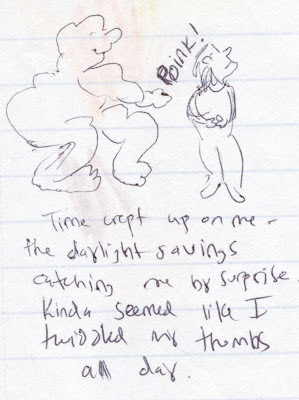 Poink!
Time crept up on me -
the daylight savings
catching me by surprise.
Kinda seemed like I
twiddled my thumbs
all day.